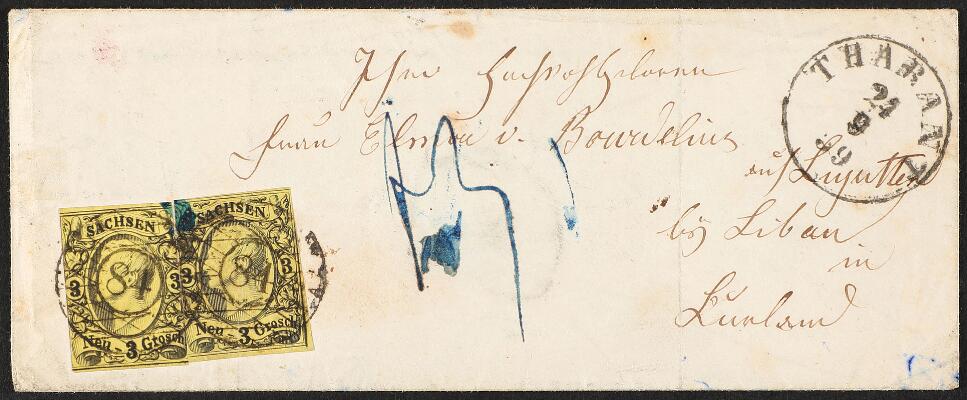 Ihro Hochwohlgeboren
Frau Elmire v. Bordelius
auf Ligutten
by Libau
in
Kurland
THARANDT
21
9
59
SACHSEN
3 84 3
Neu - 3 Grosch
SACHSEN
3 84 3
Neu - 3 Grosch